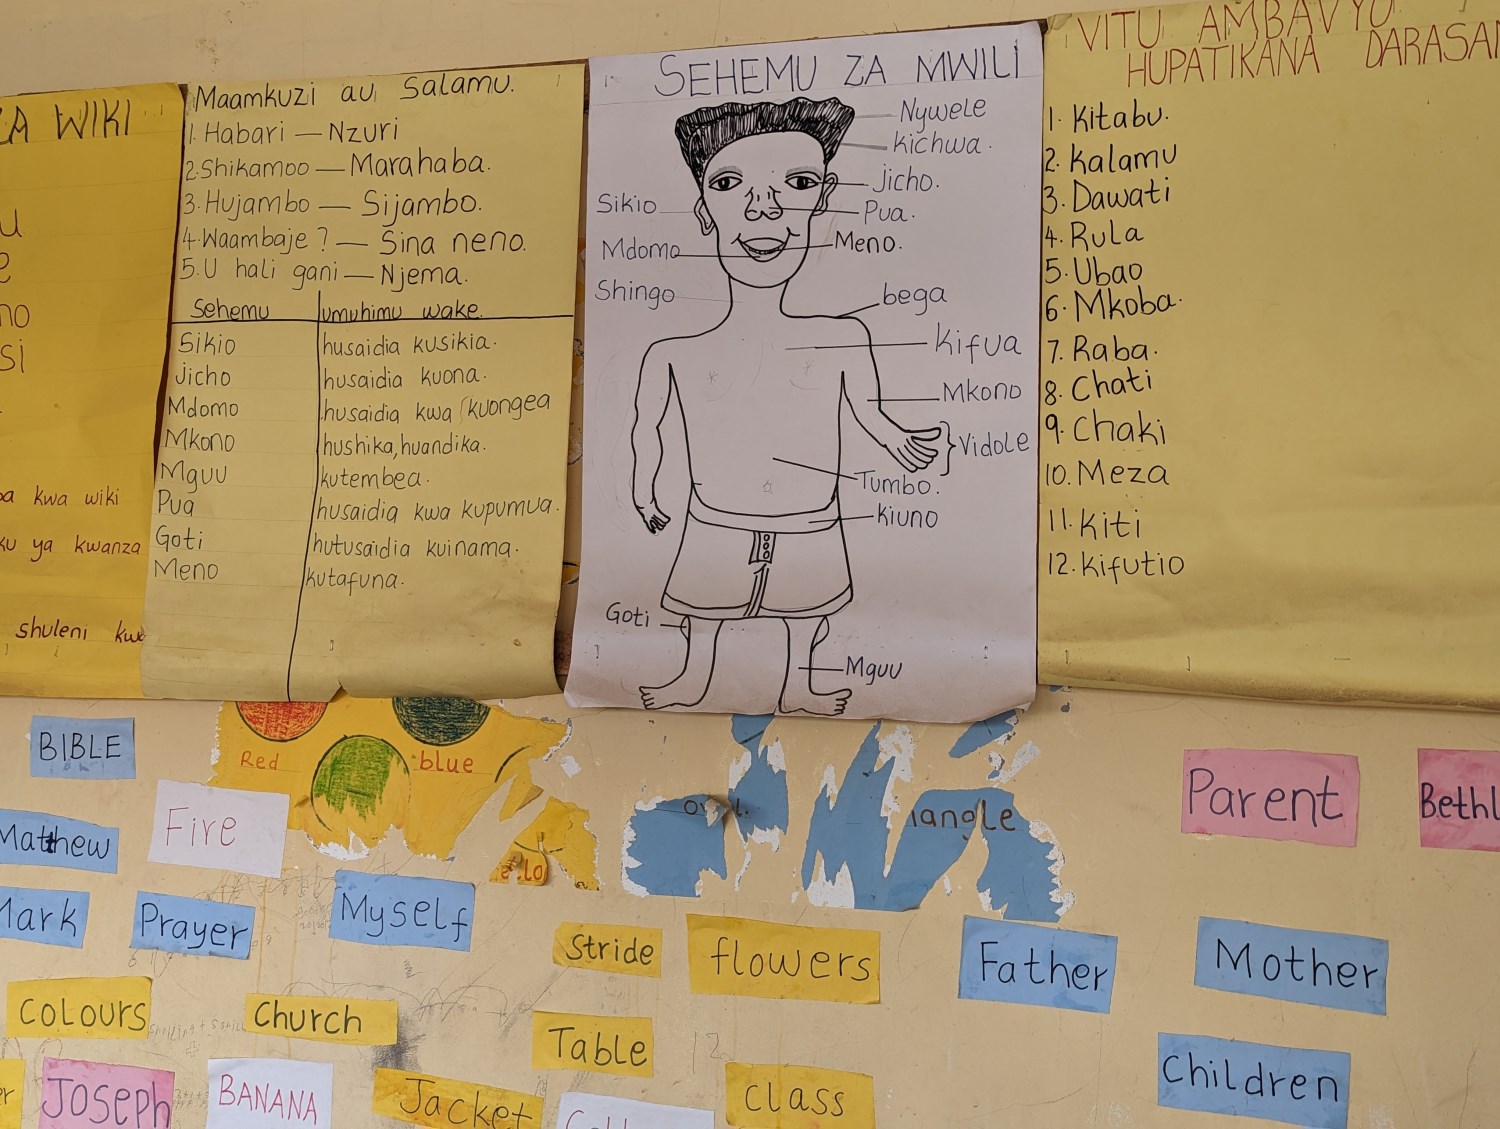 ZA WIKI
kwa wiki
ku ya kwanza
shuleni kwa
Maamkuzi au Salamu.
1. Habari — Nzuri
2. Shikamoo — Marahaba.
3. Hujambo — Sijambo.
4. Waambaje ? — Sina neno.
5. U hali gani — Njema.
Sehemu umuhimu wake.
Sikio husaidia kusikia.
Jicho husaidia kuona.
Mdomo husaidia kwa kuongea
Mkono hushika, huandika.
Mguu kutembea.
Pua husaidia kwa kupumua.
Goti hutusaidia kuinama.
Meno kutafuna.
SEHEMU ZA MWILI
Nywele
kichwa.
Jicho.
Sikio
Pua.
Mdomo
Meno.
Shingo
bega
Kifua
Mkono
Vidole
Tumbo.
Kiuno
Goti
Mguu
VITU AMBAVYO
HUPATIKANA DARASAN
1. Kitabu.
2. Kalamu
3. Dawati
4. Rula
5. Ubao
6. Mkoba.
7. Raba.
8. Chati
9. Chaki
10. Meza
11. Kiti
12. Kifutio
BIBLE
Red
blue
Fire
Matthew
iangle
Parent
Bethl
Mark
Prayer
Myself
Stride
flowers
Father
Mother
colours
Church
Table
Children
Joseph
BANANA
Jacket
class